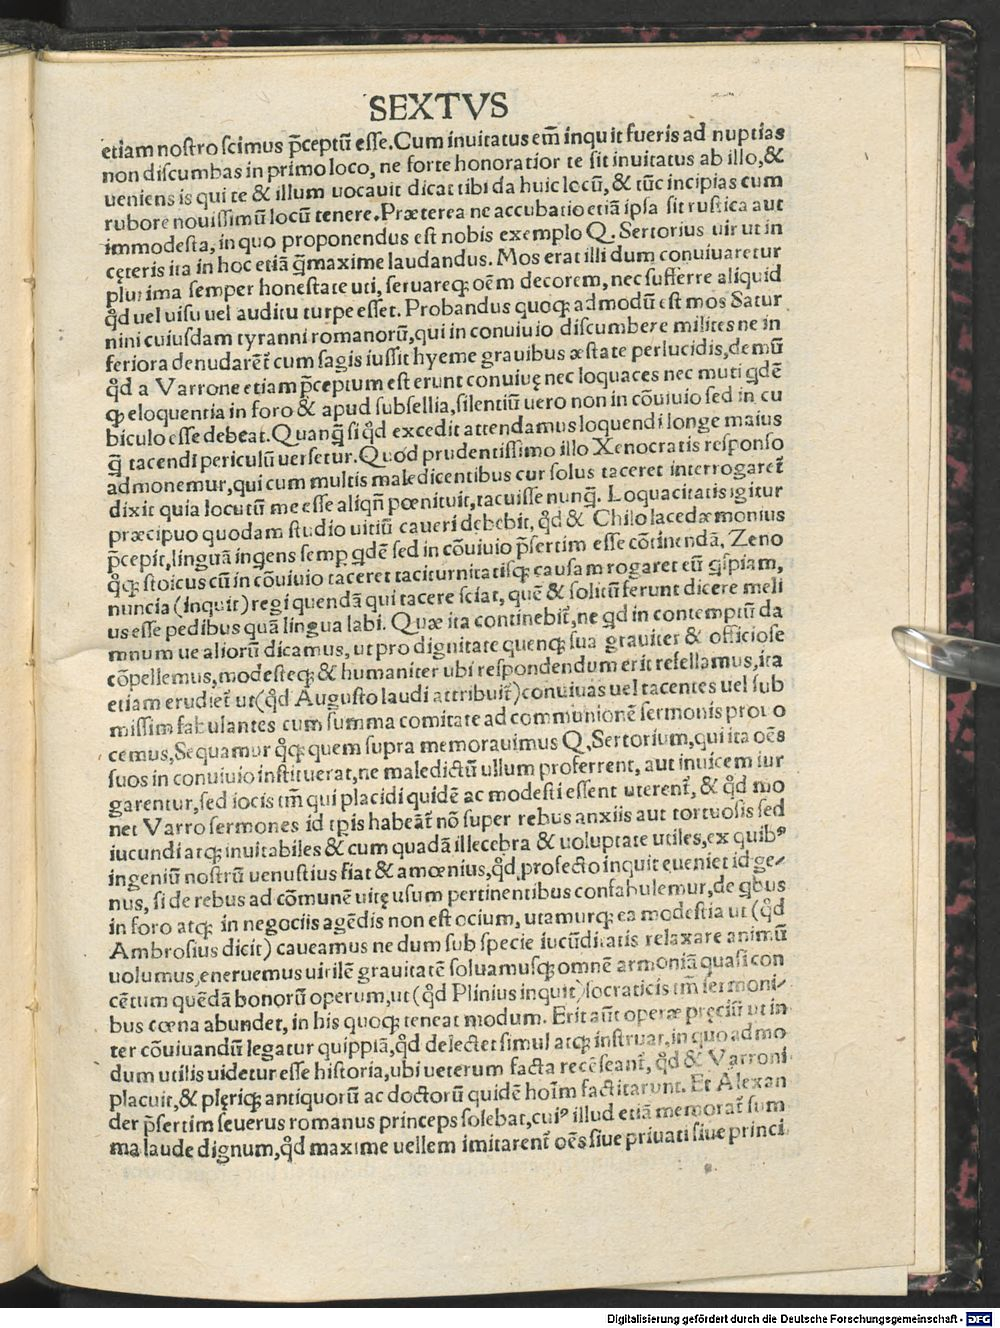 SEXTVS
etiam noſtro ſcimus p̄ceptū eſſe. Cum inuitatus em̄ inquit fueris ad nuptias
non diſcumbas in primo loco, ne forte honoratior te ſit inuitatus ab illo, &
ueniens is qui te & illum uocauit dicat tibi da huic locū, & tūc incipias cum
rubore nouiſſimū locū tenere. Præterea ne accubatio etiā ipſa ſit ruſtica aut
immodeſta, in quo proponendus eſt nobis exemplo Q. Sertorius uir ut in
cęteris ita in hoc etiā q̄maxime laudandus. Mos erat illi dum conuiuaretur
plurima ſemper honeſtate uti, ſeruareqꝫ oēm decorem, nec ſufferre aliquid
qd̄ uel uiſu uel auditu turpe eſſet. Probandus quoqꝫ admodū eſt mos Satur
nini cuiuſdam tyranni romanorū, qui in conuiuio diſcumbere milites ne in
feriora denudarēt̄ cum ſagis iuſſit hyeme grauibus æſtate perlucidis, demū
qd̄ a Varrone etiam p̄ceptum eſt erunt conuiuę nec loquaces nec muti qdē
qꝫ eloquentia in foro & apud ſubſellia, ſilentiū uero non in cōuiuio ſed in cu
biculo eſſe debeat. Quanq̄ ſi qd̄ excedit attendamus loquendi longe maius
q̄ tacendi periculū uerſetur. Quod prudentiſſimo illo Xenocratis reſponſo
admonemur, qui cum multis maledicentibus cur ſolus taceret interrogaret̄
dixit quia locutū me eſſe aliqn̄ pœnituit, tacuiſſe nunq̄. Loquacitatis igitur
præcipuo quodam ſtudio uitiū caueri debebit, qd̄ & Chilo lacedæmonius
p̄cepit, linguā ingens ſemp qdē ſed in cōuiuio p̄ſertim eſſe cōtinendā. Zeno
qqꝫ ſtoicus cū in cōuiuio taceret taciturnitatiſqꝫ cauſam rogaret eū qſpiam,
nuncia (inquit) regi quendā qui tacere ſciat, quē & ſolitū ferunt dicere meli
us eſſe pedibus quā lingua labi. Quæ ita continebit̄, ne qd in contemptū da
mnum ue aliorū dicamus, ut pro dignitate quenqꝫ ſua grauiter & officioſe
cōpellemus, modeſteqꝫ & humaniter ubi reſpondendum erit refellamus, ita
etiam erudiet̄ ut (qd̄ Auguſto laudi attribuit̄) conuiuas uel tacentes uel ſub
miſſim fabulantes cum ſumma comitate ad communionē ſermonis prouo
cemus, Sequamur qqꝫ quem ſupra memorauimus Q, Sertorium, qui ita oēs
ſuos in conuiuio inſtituerat, ne maledictū ullum proferrent, aut inuicem iur
garentur, ſed iocis tm̄ qui placidi quidē ac modeſti eſſent uterent̄, & qd̄ mo
net Varro ſermones id tp̄is habeāt̄ nō ſuper rebus anxiis aut tortuoſis ſed
iucundi atqꝫ inuitabiles & cum quadā illecebra & uoluptate utiles, ex quibꝰ
ingeniū noſtrū uenuſtius fiat & amœnius, qd̄ profecto inquit eueniet id ge⸗
nus, ſi de rebus ad cōmunē uitę uſum pertinentibus confabulemur, de qbus
in foro atqꝫ in negociis agēdis non eſt ocium, utamurqꝫ ea modeſtia ut (qd̄
Ambroſius dicit) caueamus ne dum ſub ſpecie iucūditatis relaxare animū
uolumus, eneruemus uirilē grauitatē ſoluamuſqꝫ omnē armoniā quaſi con
cētum quēdā bonorū operum, ut (qd̄ Plinius inquit) ſocraticis tm̄ ſermoni⸗
bus cœna abundet, in his quoqꝫ teneat modum. Erit aūt operæ pręciū ut in
ter cōuiuandū legatur quippiā, qd̄ delectet ſimul atqꝫ inſtruat, in quo admo
dum utilis uidetur eſſe hiſtoria, ubi ueterum facta recēſeant̄, qd̄ & Varroni
placuit, & plęriqꝫ antiquorū ac doctorū quidē hoīm factitarunt. Et Alexan
der p̄ſertim ſeuerus romanus princeps ſolebat, cuiꝰ illud etiā memorat̄ ſum
ma laude dignum, qd̄ maxime uellem imitarent̄ oēs ſiue priuati ſiue princi
Digitalisierung gefördert durch die Deutsche Forschungsgemeinschaft - DFG